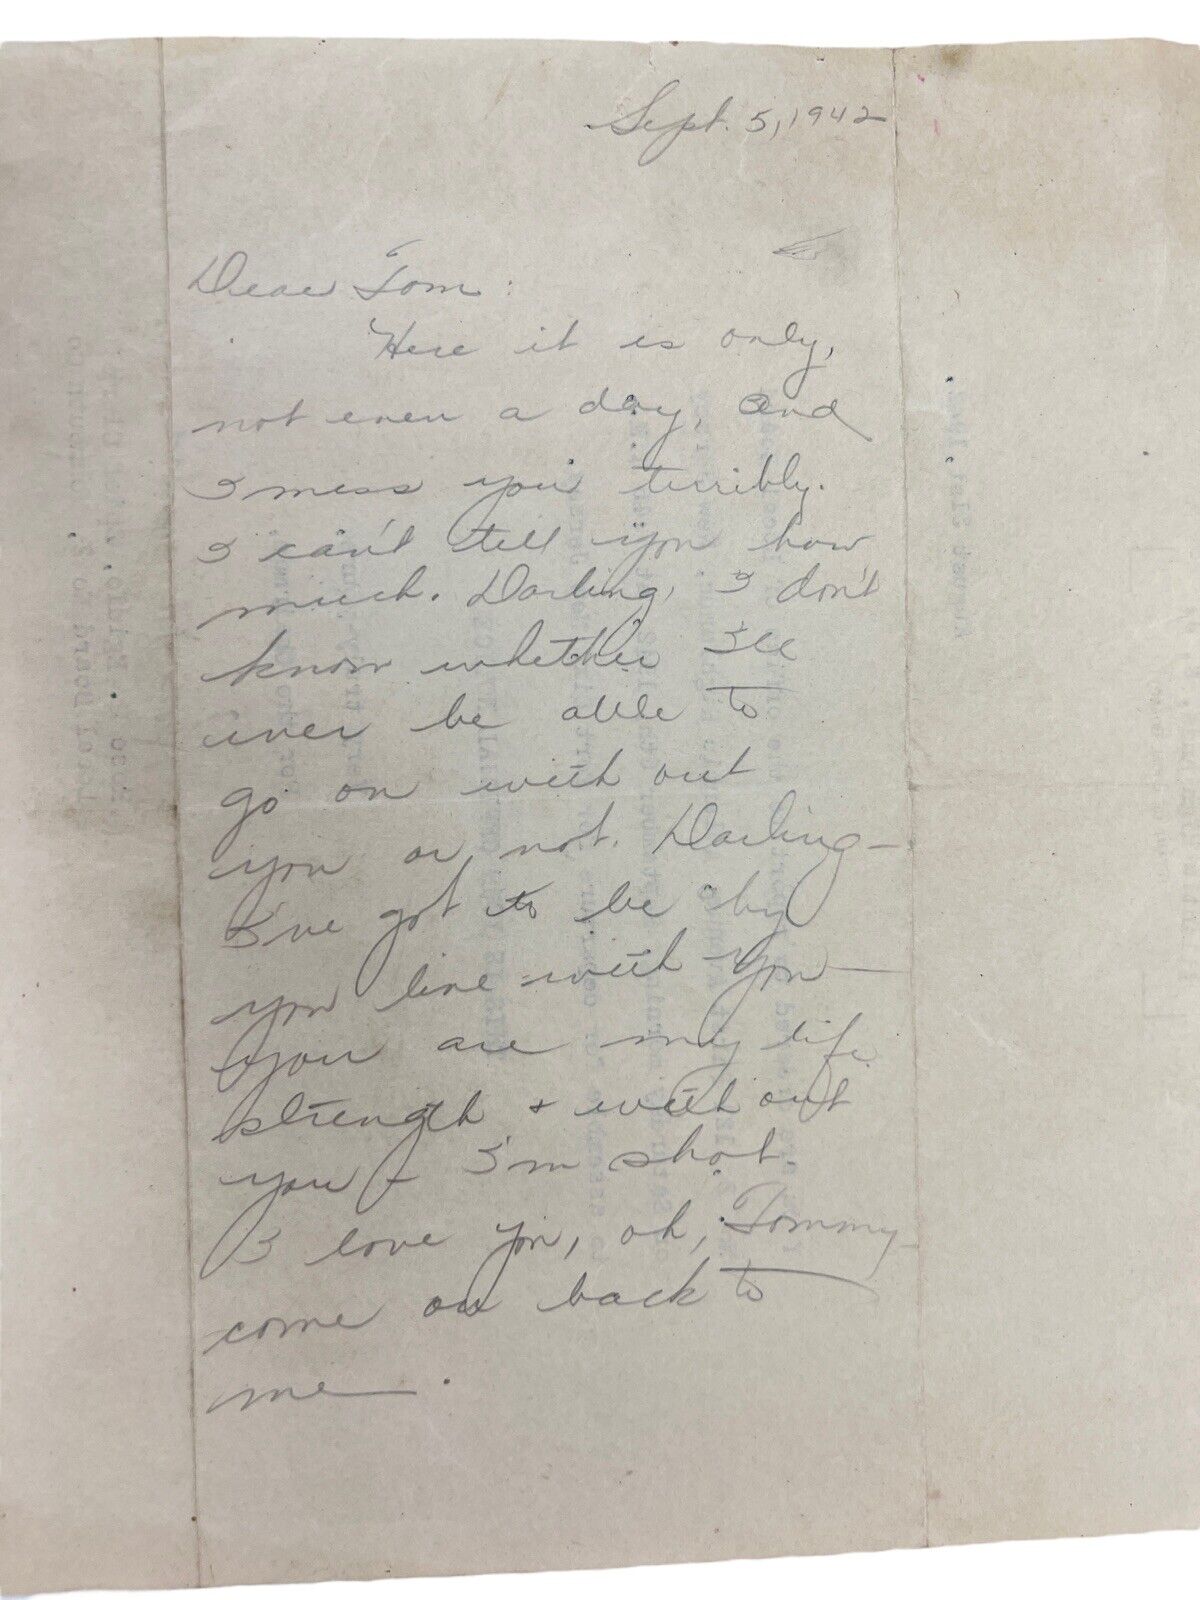 Sept. 5, 1942
Dear Tom:
Here it is only,
not even a day, and
I miss you terribly.
I can't tell you how
much. Darling, I don't
know whether I'll
ever be able to
go on with out
you or not. Darling—
I've got to be by
you live with you—
you are my life
strength + with out
you – I'm shot.
I love you, oh, Tommy
come on back to
me—.